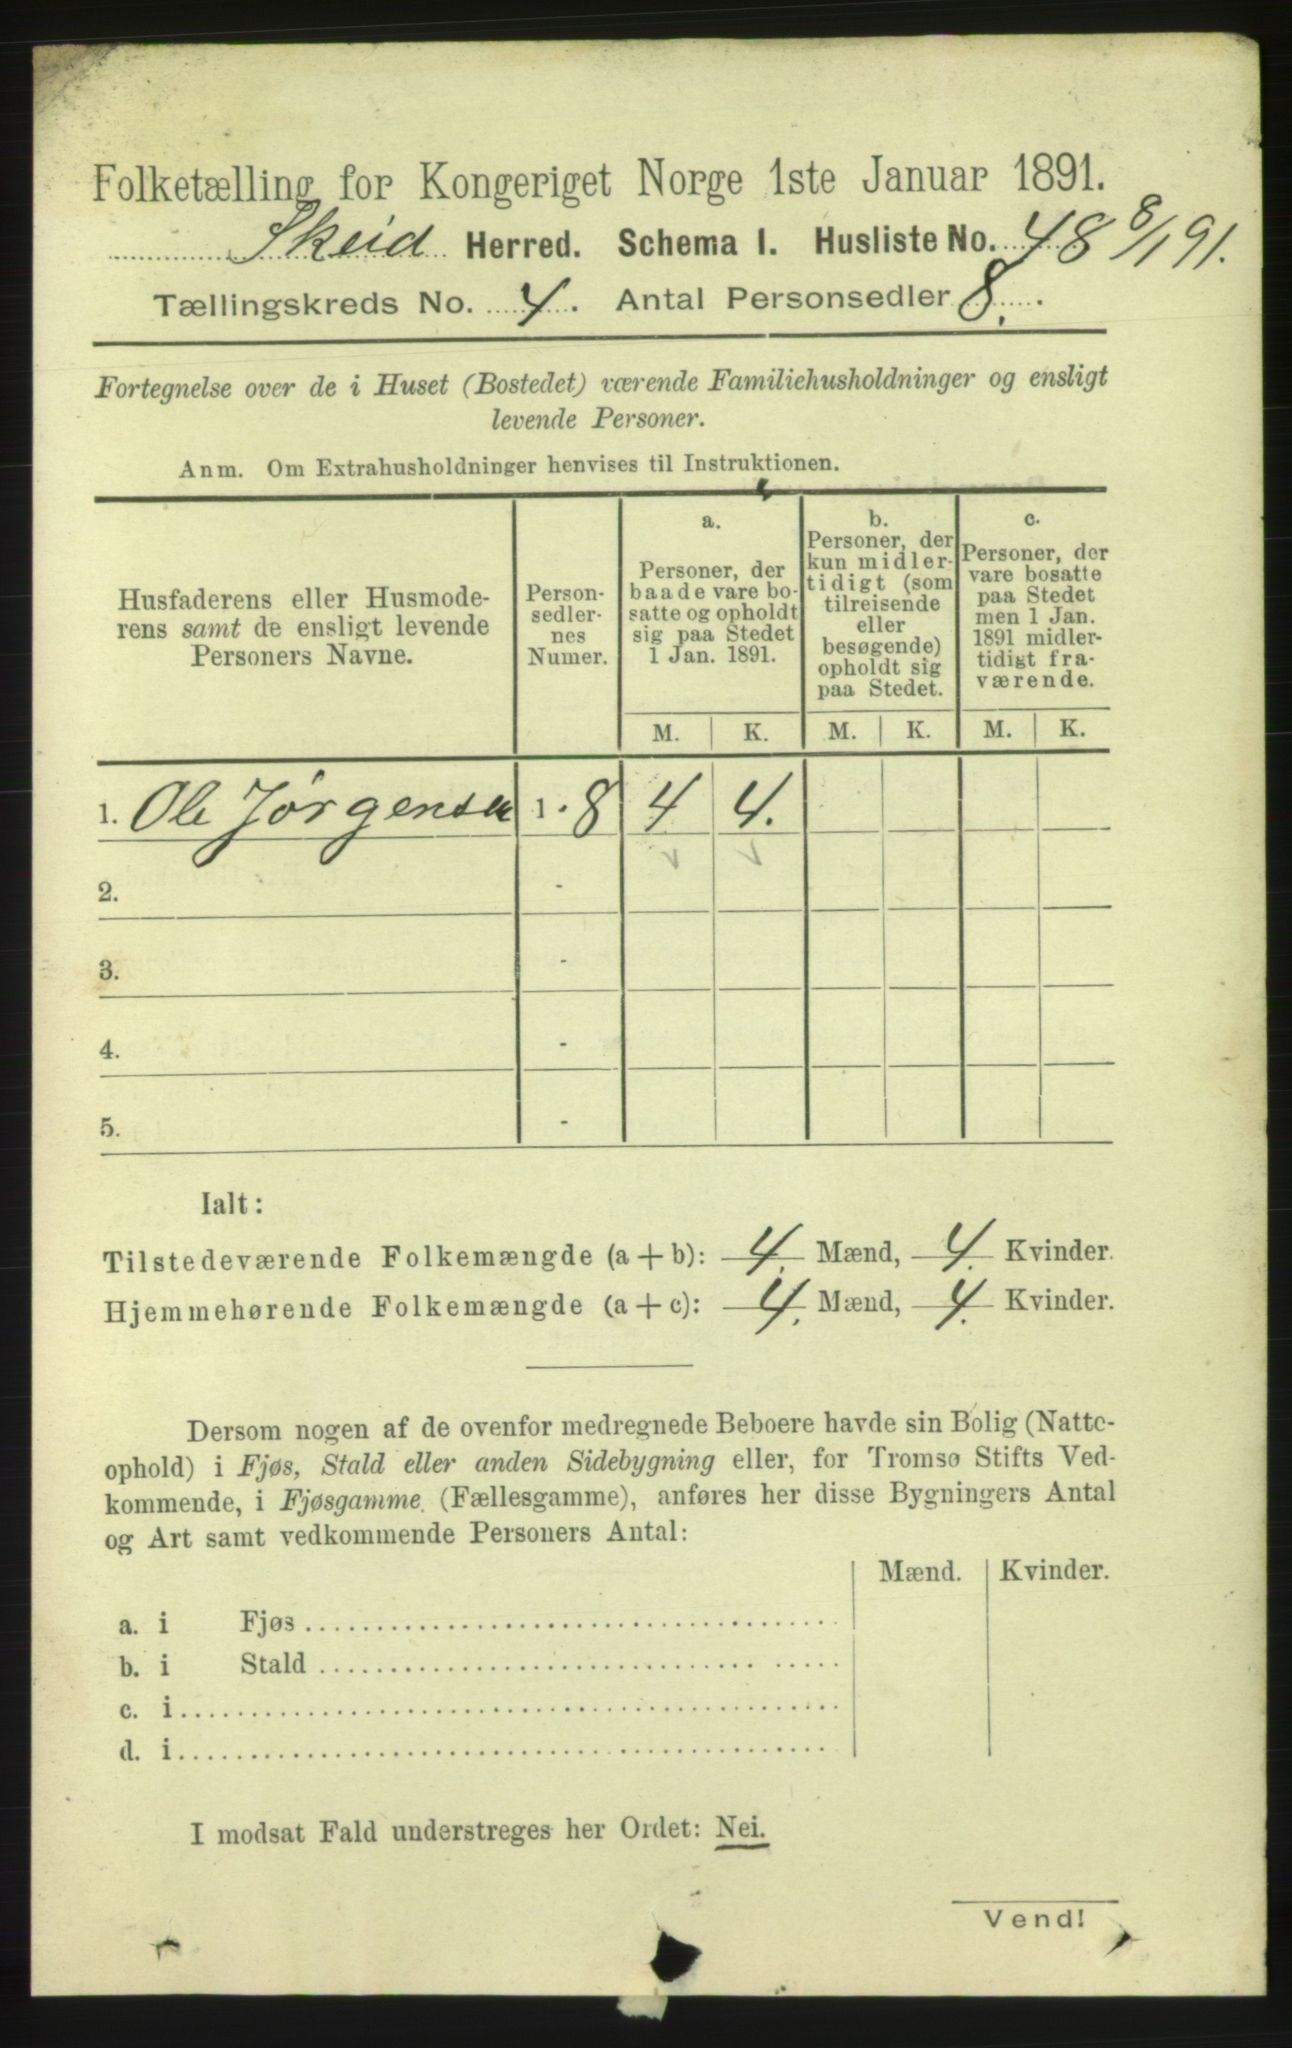 Folketælling for Kongeriget Norge 1ste Januar 1891.
Skeid Herred. Schema I. Husliste No. 48 8/1 91.
Tællingskreds No. 4. Antal Personsedler 8.
Fortegnelse over de i Huset (Bostedet) værende Familiehusholdninger og ensligt
levende Personer.
Anm. Om Extrahusholdninger henvises til Instruktionen.
Husfaderens eller Husmode-
rens samt de ensligt levende
Personers Navne.
Person-
sedler-
nes
Numer.
a.
Personer, der
baade vare bo-
satte og opholdt
sig paa Stedet
1 Jan. 1891.
b.
Personer, der
kun midler-
tidigt (som
tilreisende
eller
besøgende)
opholdt sig
paa Stedet.
c.
Personer, der
vare bosatte
paa Stedet
men 1 Jan.
1891 midler-
tidigt fra-
værende.
M. K. M. K. M. K.
1. Ole Jørgensen 1 - 8 4 4.
2. -
3. -
4. -
5. -
Ialt:
Tilstedeværende Folkemængde (a + b): 4. Mænd, 4. Kvinder.
Hjemmehørende Folkemængde (a + c): 4. Mænd, 4. Kvinder.
Dersom nogen af de ovenfor medregnede Beboere havde sin Bolig (Natte-
ophold) i Fjøs, Stald eller anden Sidebygning eller, for Tromsø Stifts Ved-
kommende, i Fjøsgamme (Fællesgamme), anføres her disse Bygningers Antal
og Art samt vedkommende Personers Antal:
Mænd. Kvinder.
a. i Fjøs
b. i Stald
c. i
d. i
I modsat Fald understreges her Ordet: Nei.
Vend!